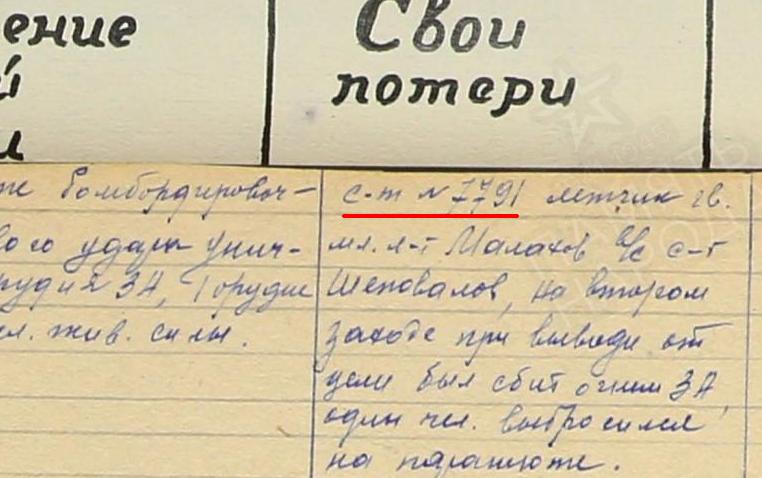 ение
й
и
Свои
потери
те бомбордировоч-
вого удара унич-
рудия ЗА, 1 орудие
ел. жив. силы.
с-т №7791 летчик гв.
мл. л-т Малахов в/с с-т
Шеповалов, на втором
заходе при выводе от
цели был сбит огнем ЗА,
один чел. выбросился
на парашюте.